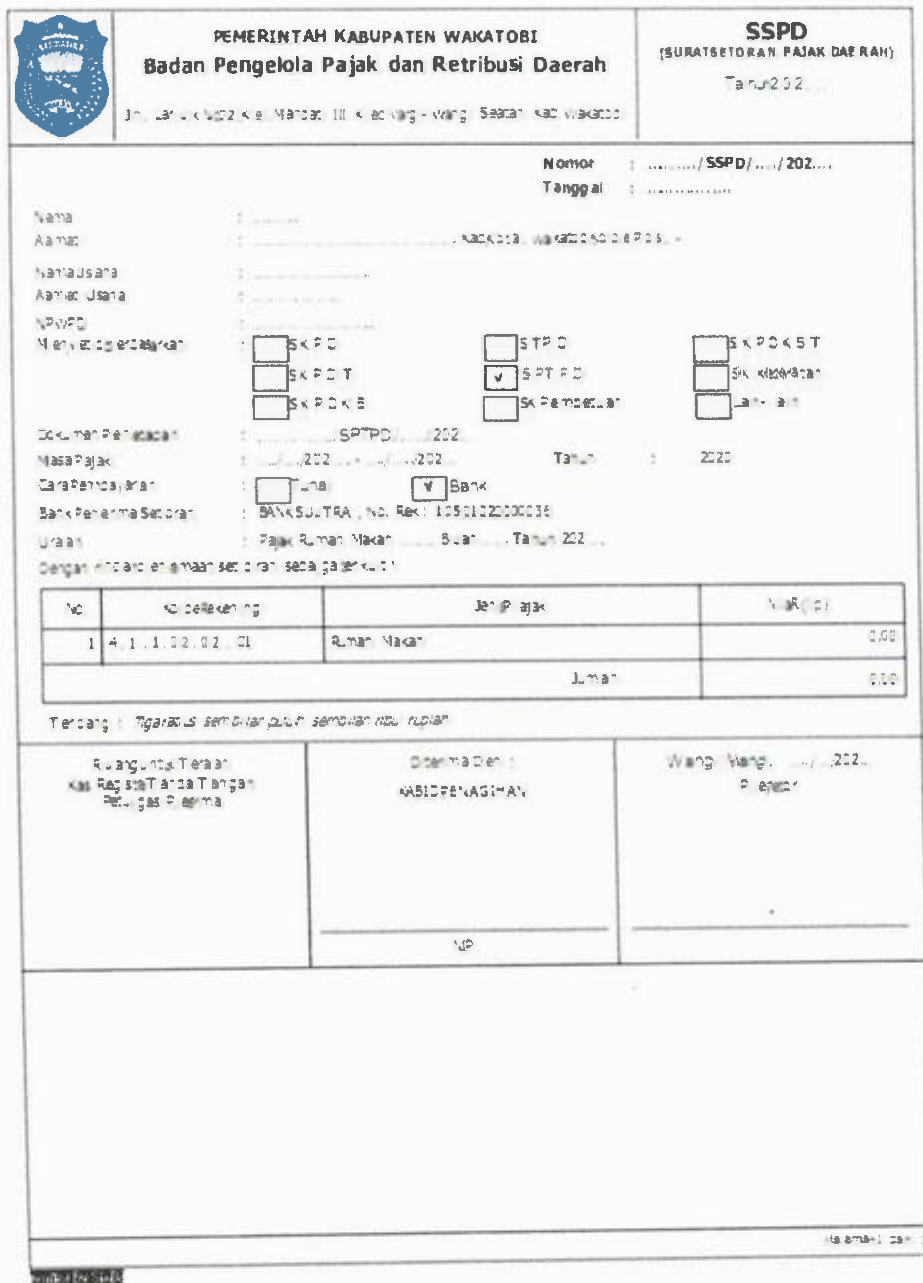 PEMERINTAH KABUPATEN WAKATOBI
Badan Pengelola Pajak dan Retribusi Daerah
SSPD
(SURAT SETORAN PAJAK DAERAH)
Tahun 202....
Nomor : ........../SSPD/..../202....
Tanggal : ...............
Nama : ........
Alamat : ........ , Kab/Kota. Wakatobi Kode Pos. -
Nama Usaha : ........
Alamat Usaha : ........
NPWPD : ........
Menyetor berdasarkan :
SKPD
STPD
SKPDKBT
SKPDT
v SPTPD
SK Keberatan
SKPDKB
SK Pembetulan
Lain-lain
Dokumen Penetapan : ........../SPTPD/..../202...
Masa Pajak : .../.../202... - .../.../202... Tahun : 2020
Cara Pembayaran : Tunai v Bank
Bank Penerima Setoran : BANK SULTRA , No. Rek :
Uraian : Pajak Rumah Makan ...... Bulan ..... Tahun 202....
Dengan rincian penerimaan setoran sebagai berikut :
No. Kode Rekening Jenis Pajak Nilai (Rp)
1 4.1.1.02.02.01 Rumah Makan 0,00
Jumlah 0,00
Terbilang : Tigaratus sembilan puluh sembilan ribu rupiah
Ruang untuk Teraan
Kas Register/Tanda Tangan
Petugas Penerima
Diterima Oleh :
KABID PENAGIHAN
NIP
Wangi-Wangi, ..../..../202...
Penyetor